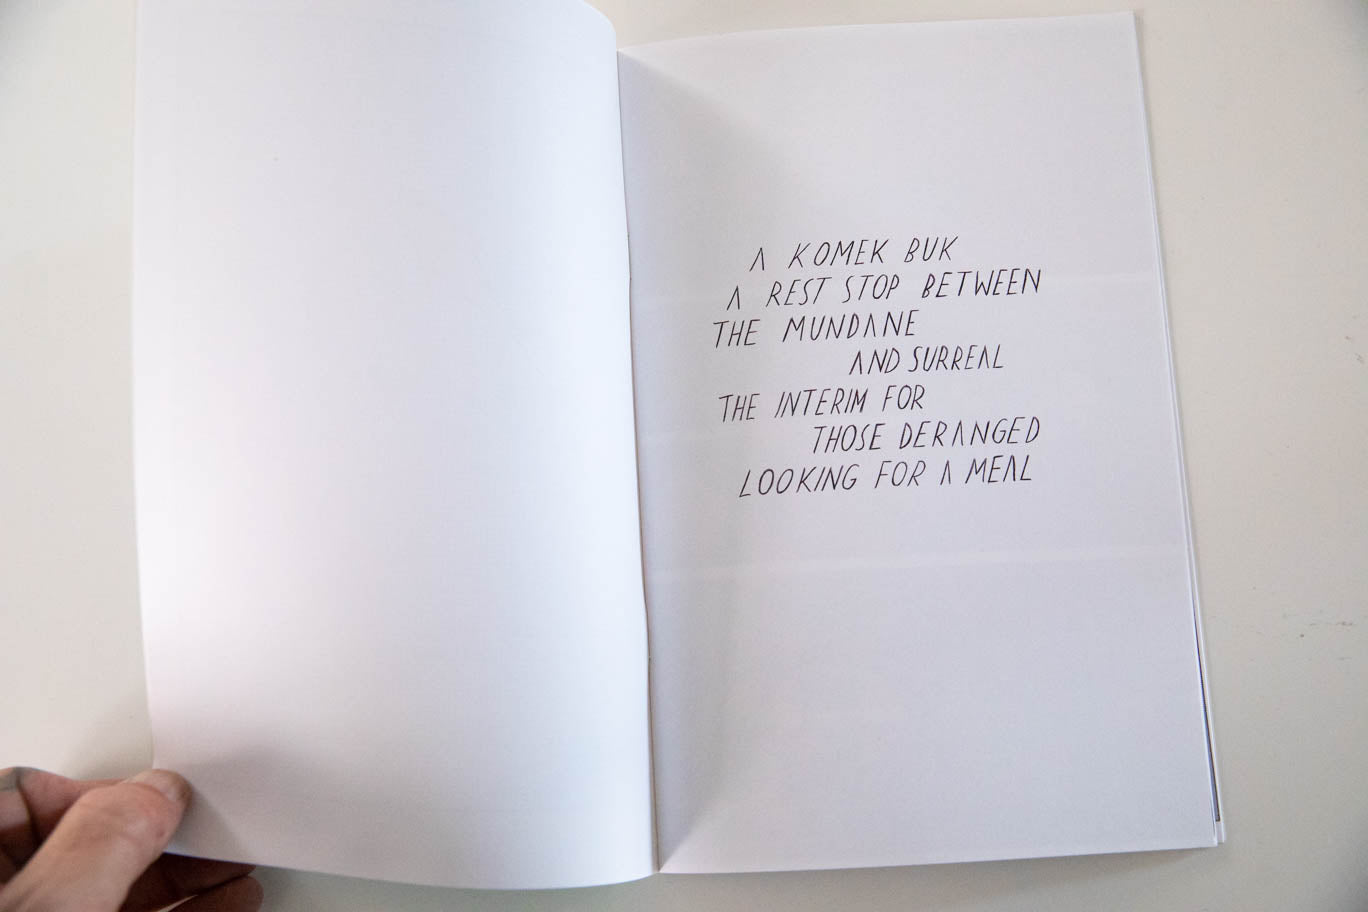 A KOMEK BUK
A REST STOP BETWEEN
THE MUNDANE
AND SURREAL
THE INTERIM FOR
THOSE DERANGED
LOOKING FOR A MEAL